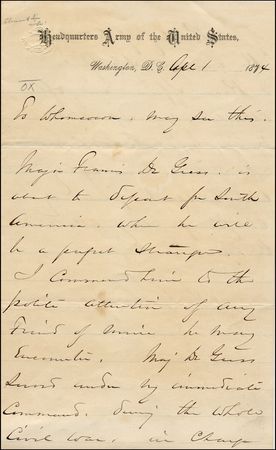 Headquarters Army of the United States,
Washington, D.C. Apl 1 1874
To Whomever may see this.
Major Francis De Gress is
about to depart for South
America, when he will
be a perfect stranger.
I Commend him to the
polite attention of any
Friend of mine he may
Encounter. Maj De Gress
Served under my immediate
Command, during the whole
Civil War, in Charge